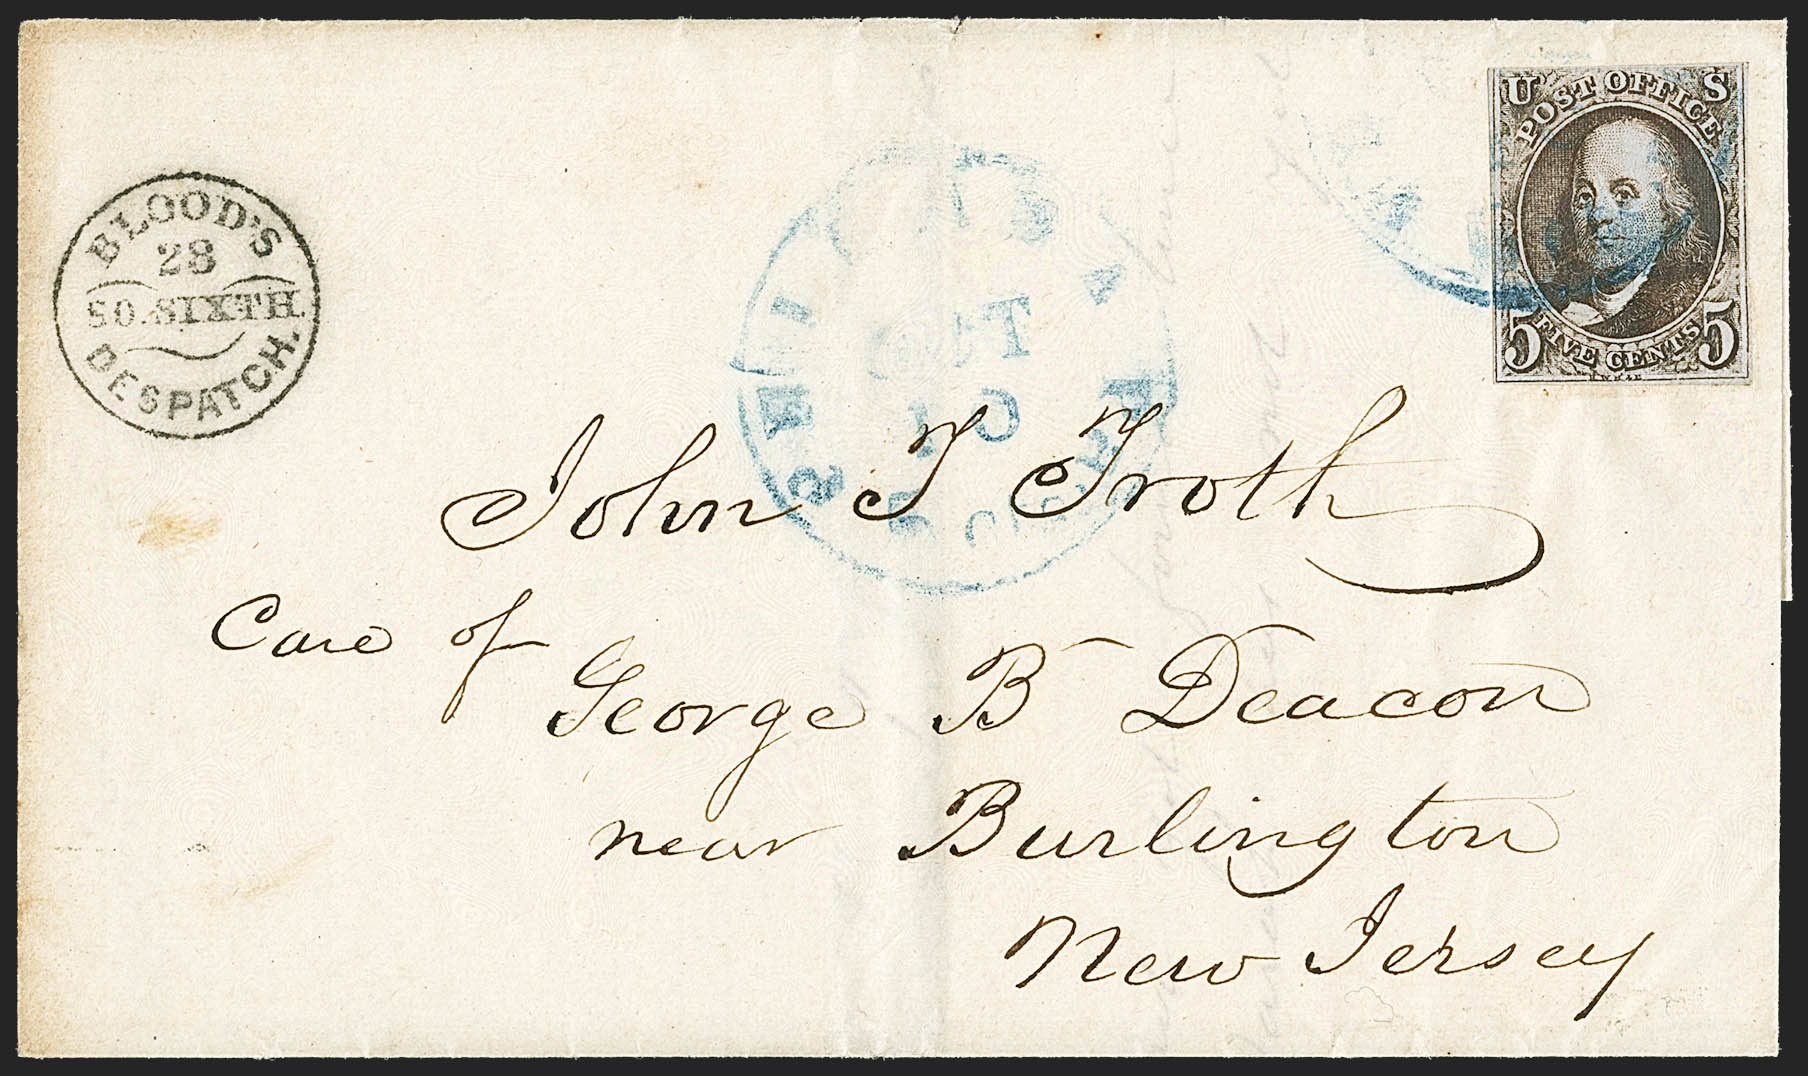 BLOOD'S
28
SO. SIXTH.
DESPATCH.
U S
POST OFFICE
5 FIVE CENTS 5
OCT
John T Troth
Care of
George B Deacon
near Burlington
New Jersey